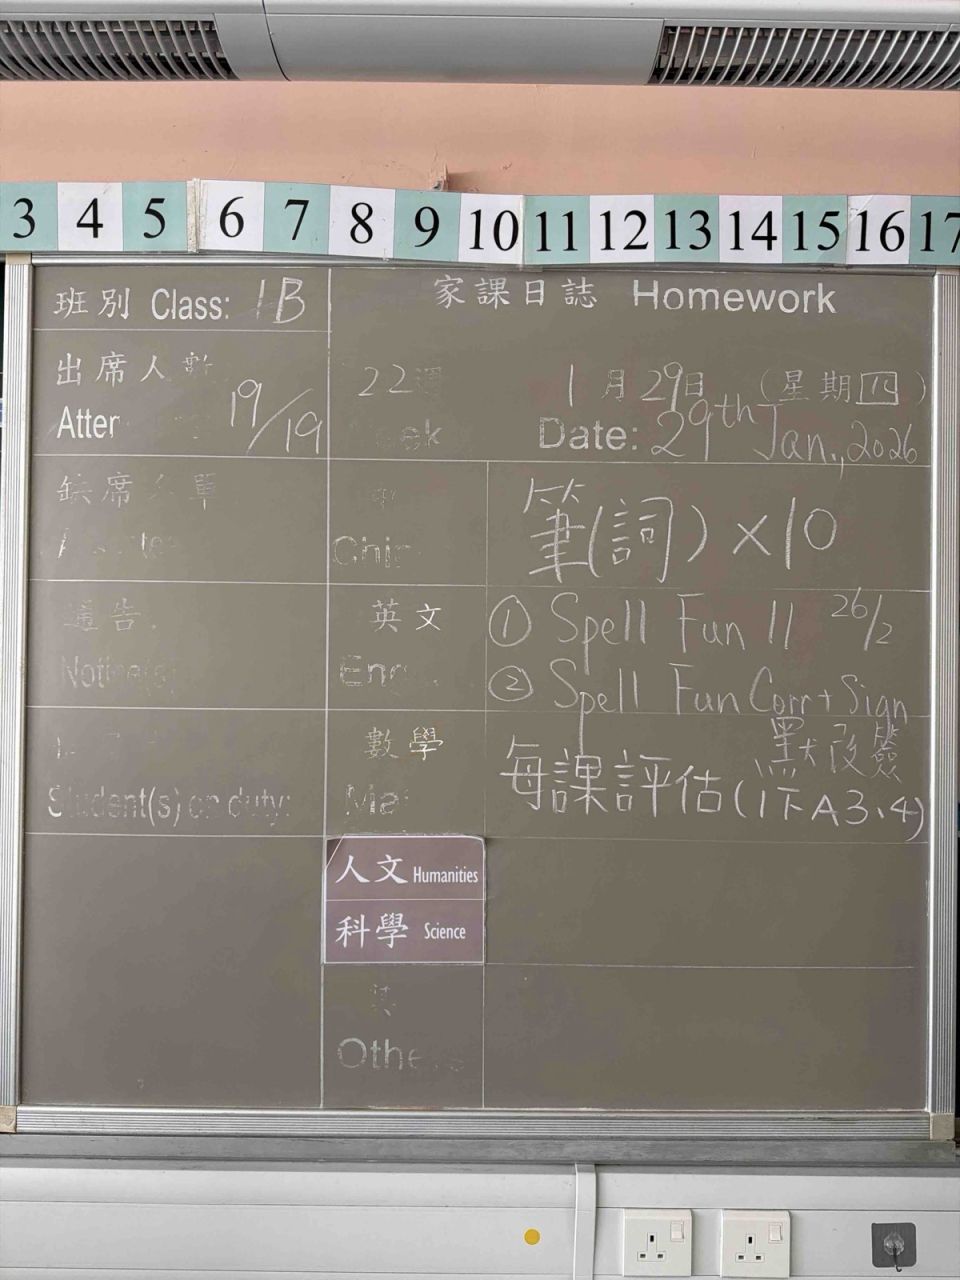 3 4 5 6 7 8 9 10 11 12 13 14 15 16 17
班別 Class: 1B
家課日誌 Homework
出席人數
Atter 19/19
22週
eek
1月29日 (星期四)
Date: 29th Jan., 2026
缺席名單
中
Chin
筆(詞)×10
通告
Notice(s)
英文
Eng
① Spell Fun 11 26/2
② Spell Fun Corr + Sign
默改簽
Student(s) on duty:
數學
Mat
每課評估(1下A3、4)
人文 Humanities
科學 Science
其
Others